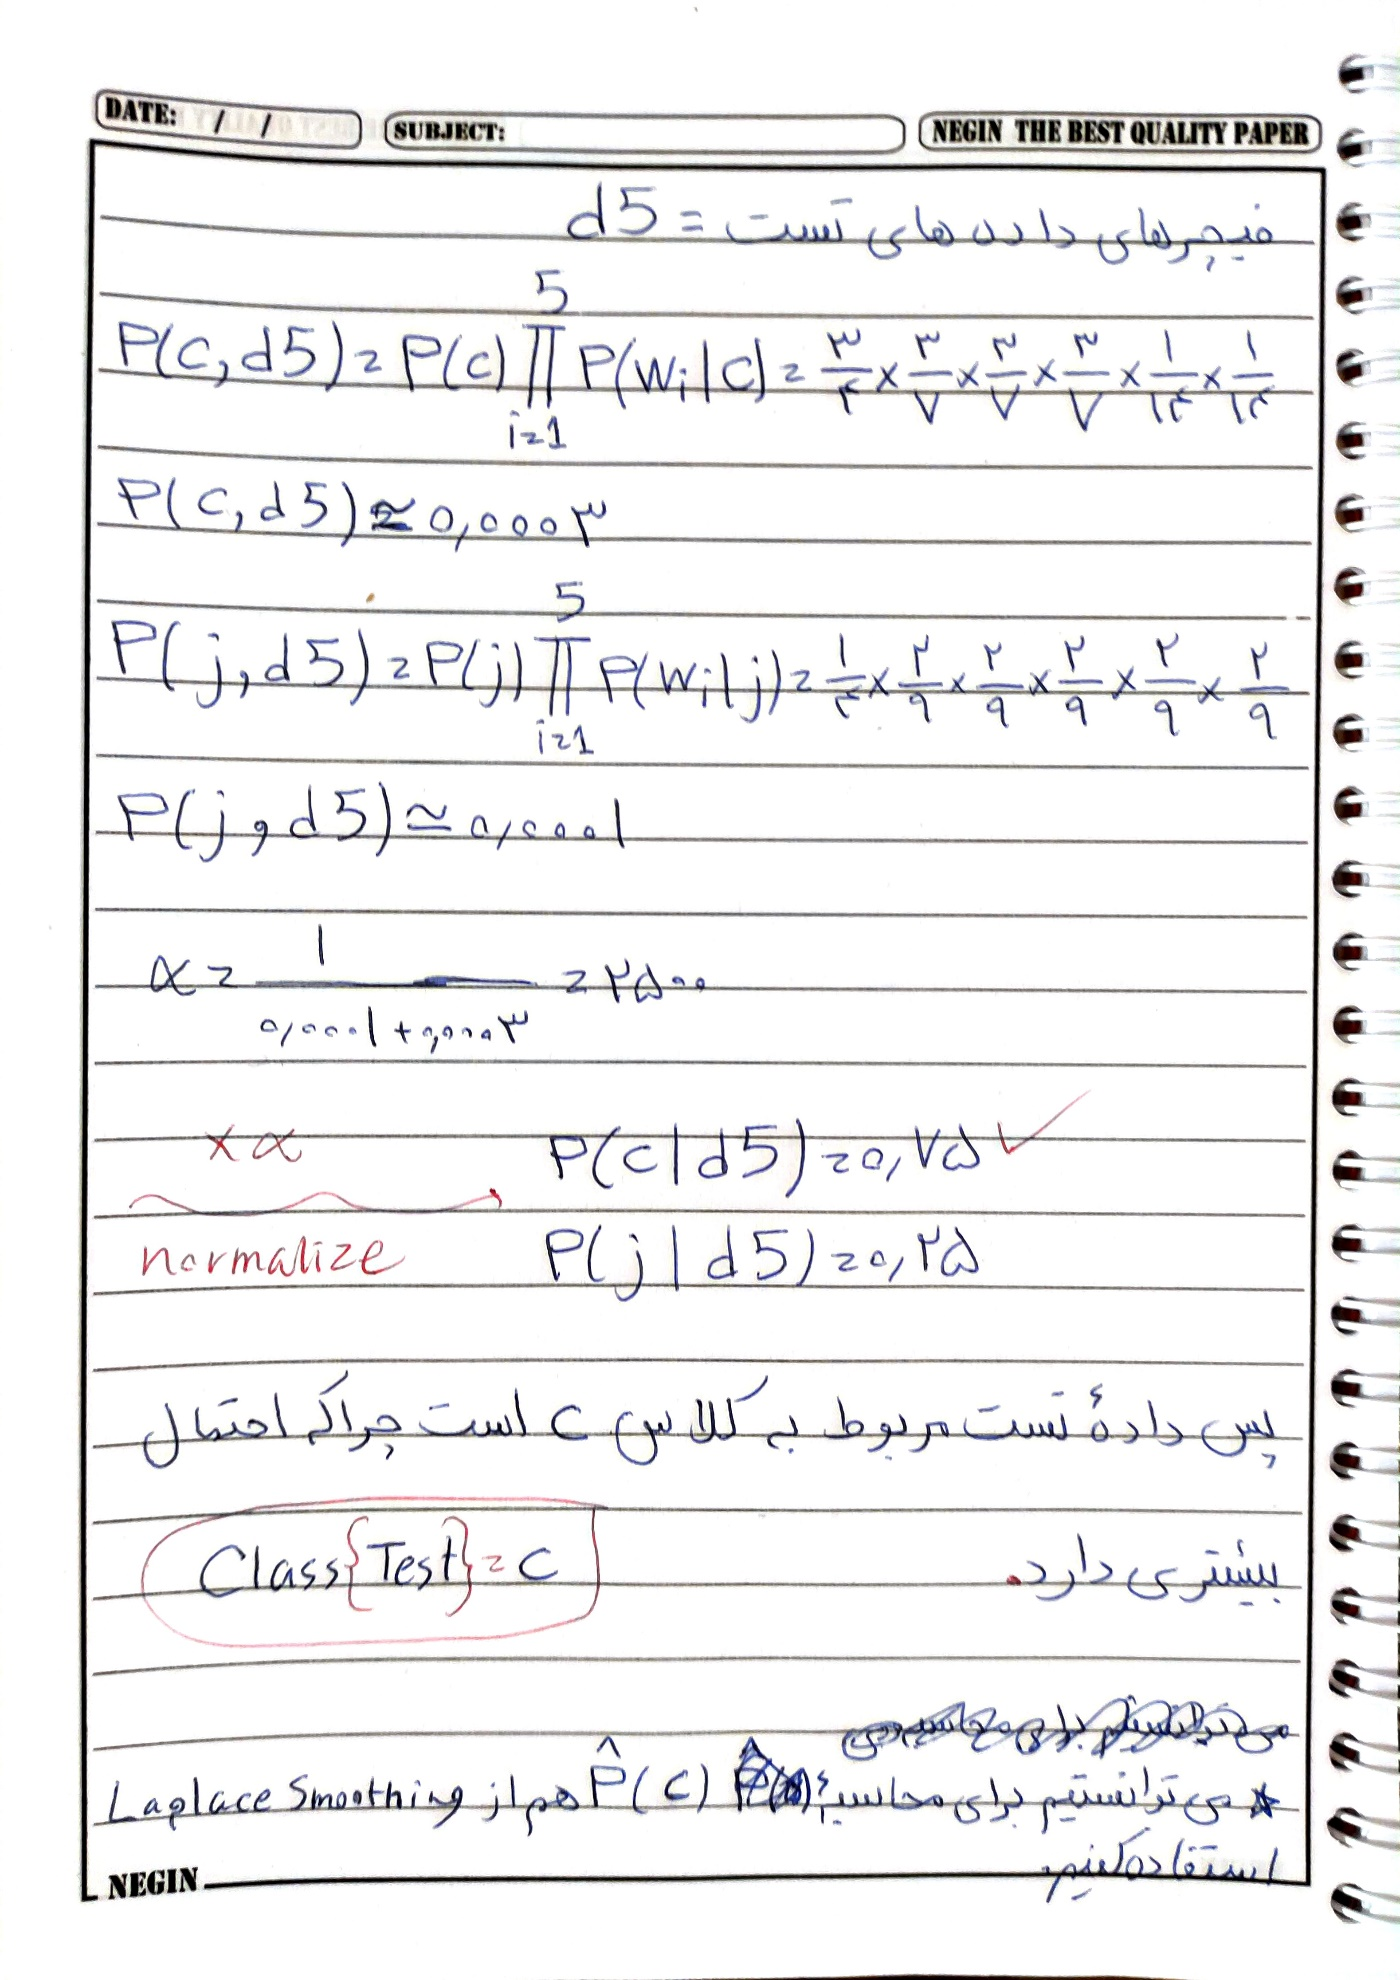 DATE: / /
SUBJECT:
NEGIN THE BEST QUALITY PAPER
فیچرهای داده های تست = d5
P(c,d5) = P(c) ∏_{i=1}^{5} P(wi|c) = ۳/۴ × ۳/۷ × ۳/۷ × ۳/۷ × ۱/۱۴ × ۱/۱۴
P(c,d5) ≃ ۰,۰۰۰۳
P(j,d5) = P(j) ∏_{i=1}^{5} P(wi|j) = ۱/۴ × ۲/۹ × ۲/۹ × ۲/۹ × ۲/۹ × ۲/۹
P(j,d5) ≃ ۰,۰۰۰۱
α = ۱/(۰,۰۰۰۱ + ۰,۰۰۰۳) = ۲۵۰۰
×α
P(c|d5) = ۰,۷۵ ✓
normalize
P(j|d5) = ۰,۲۵
پس دادهٔ تست مربوط به کلاس c است چراکه احتمال
بیشتری دارد.
Class{Test} = c
* می توانستیم برای محاسبهٔ P̂(c) هم از Laplace Smoothing
استفاده کنیم.
NEGIN